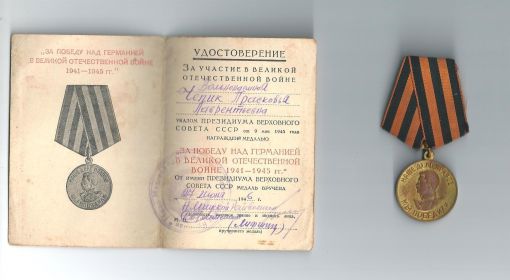 „ЗА ПОБЕДУ НАД ГЕРМАНИЕЙ
В ВЕЛИКОЙ ОТЕЧЕСТВЕННОЙ ВОЙНЕ
1941—1945 гг."
УДОСТОВЕРЕНИЕ
ЗА УЧАСТИЕ В ВЕЛИКОЙ
ОТЕЧЕСТВЕННОЙ ВОЙНЕ
Вольнонаёмная
Чепик Прасковья
Лаврентьевна
УКАЗОМ ПРЕЗИДИУМА ВЕРХОВНОГО
СОВЕТА СССР от 9 мая 1945 года
НАГРАЖДЕН МЕДАЛЬЮ
„ЗА ПОБЕДУ НАД ГЕРМАНИЕЙ
В ВЕЛИКОЙ ОТЕЧЕСТВЕННОЙ
ВОЙНЕ 1941—1945 гг."
ОТ ИМЕНИ ПРЕЗИДИУМА ВЕРХОВНОГО
СОВЕТА СССР МЕДАЛЬ ВРУЧЕНА
июня 1946 г.
вручившего медаль)
НАШЕ ДЕЛО ПРАВОЕ
МЫ ПОБЕДИЛИ